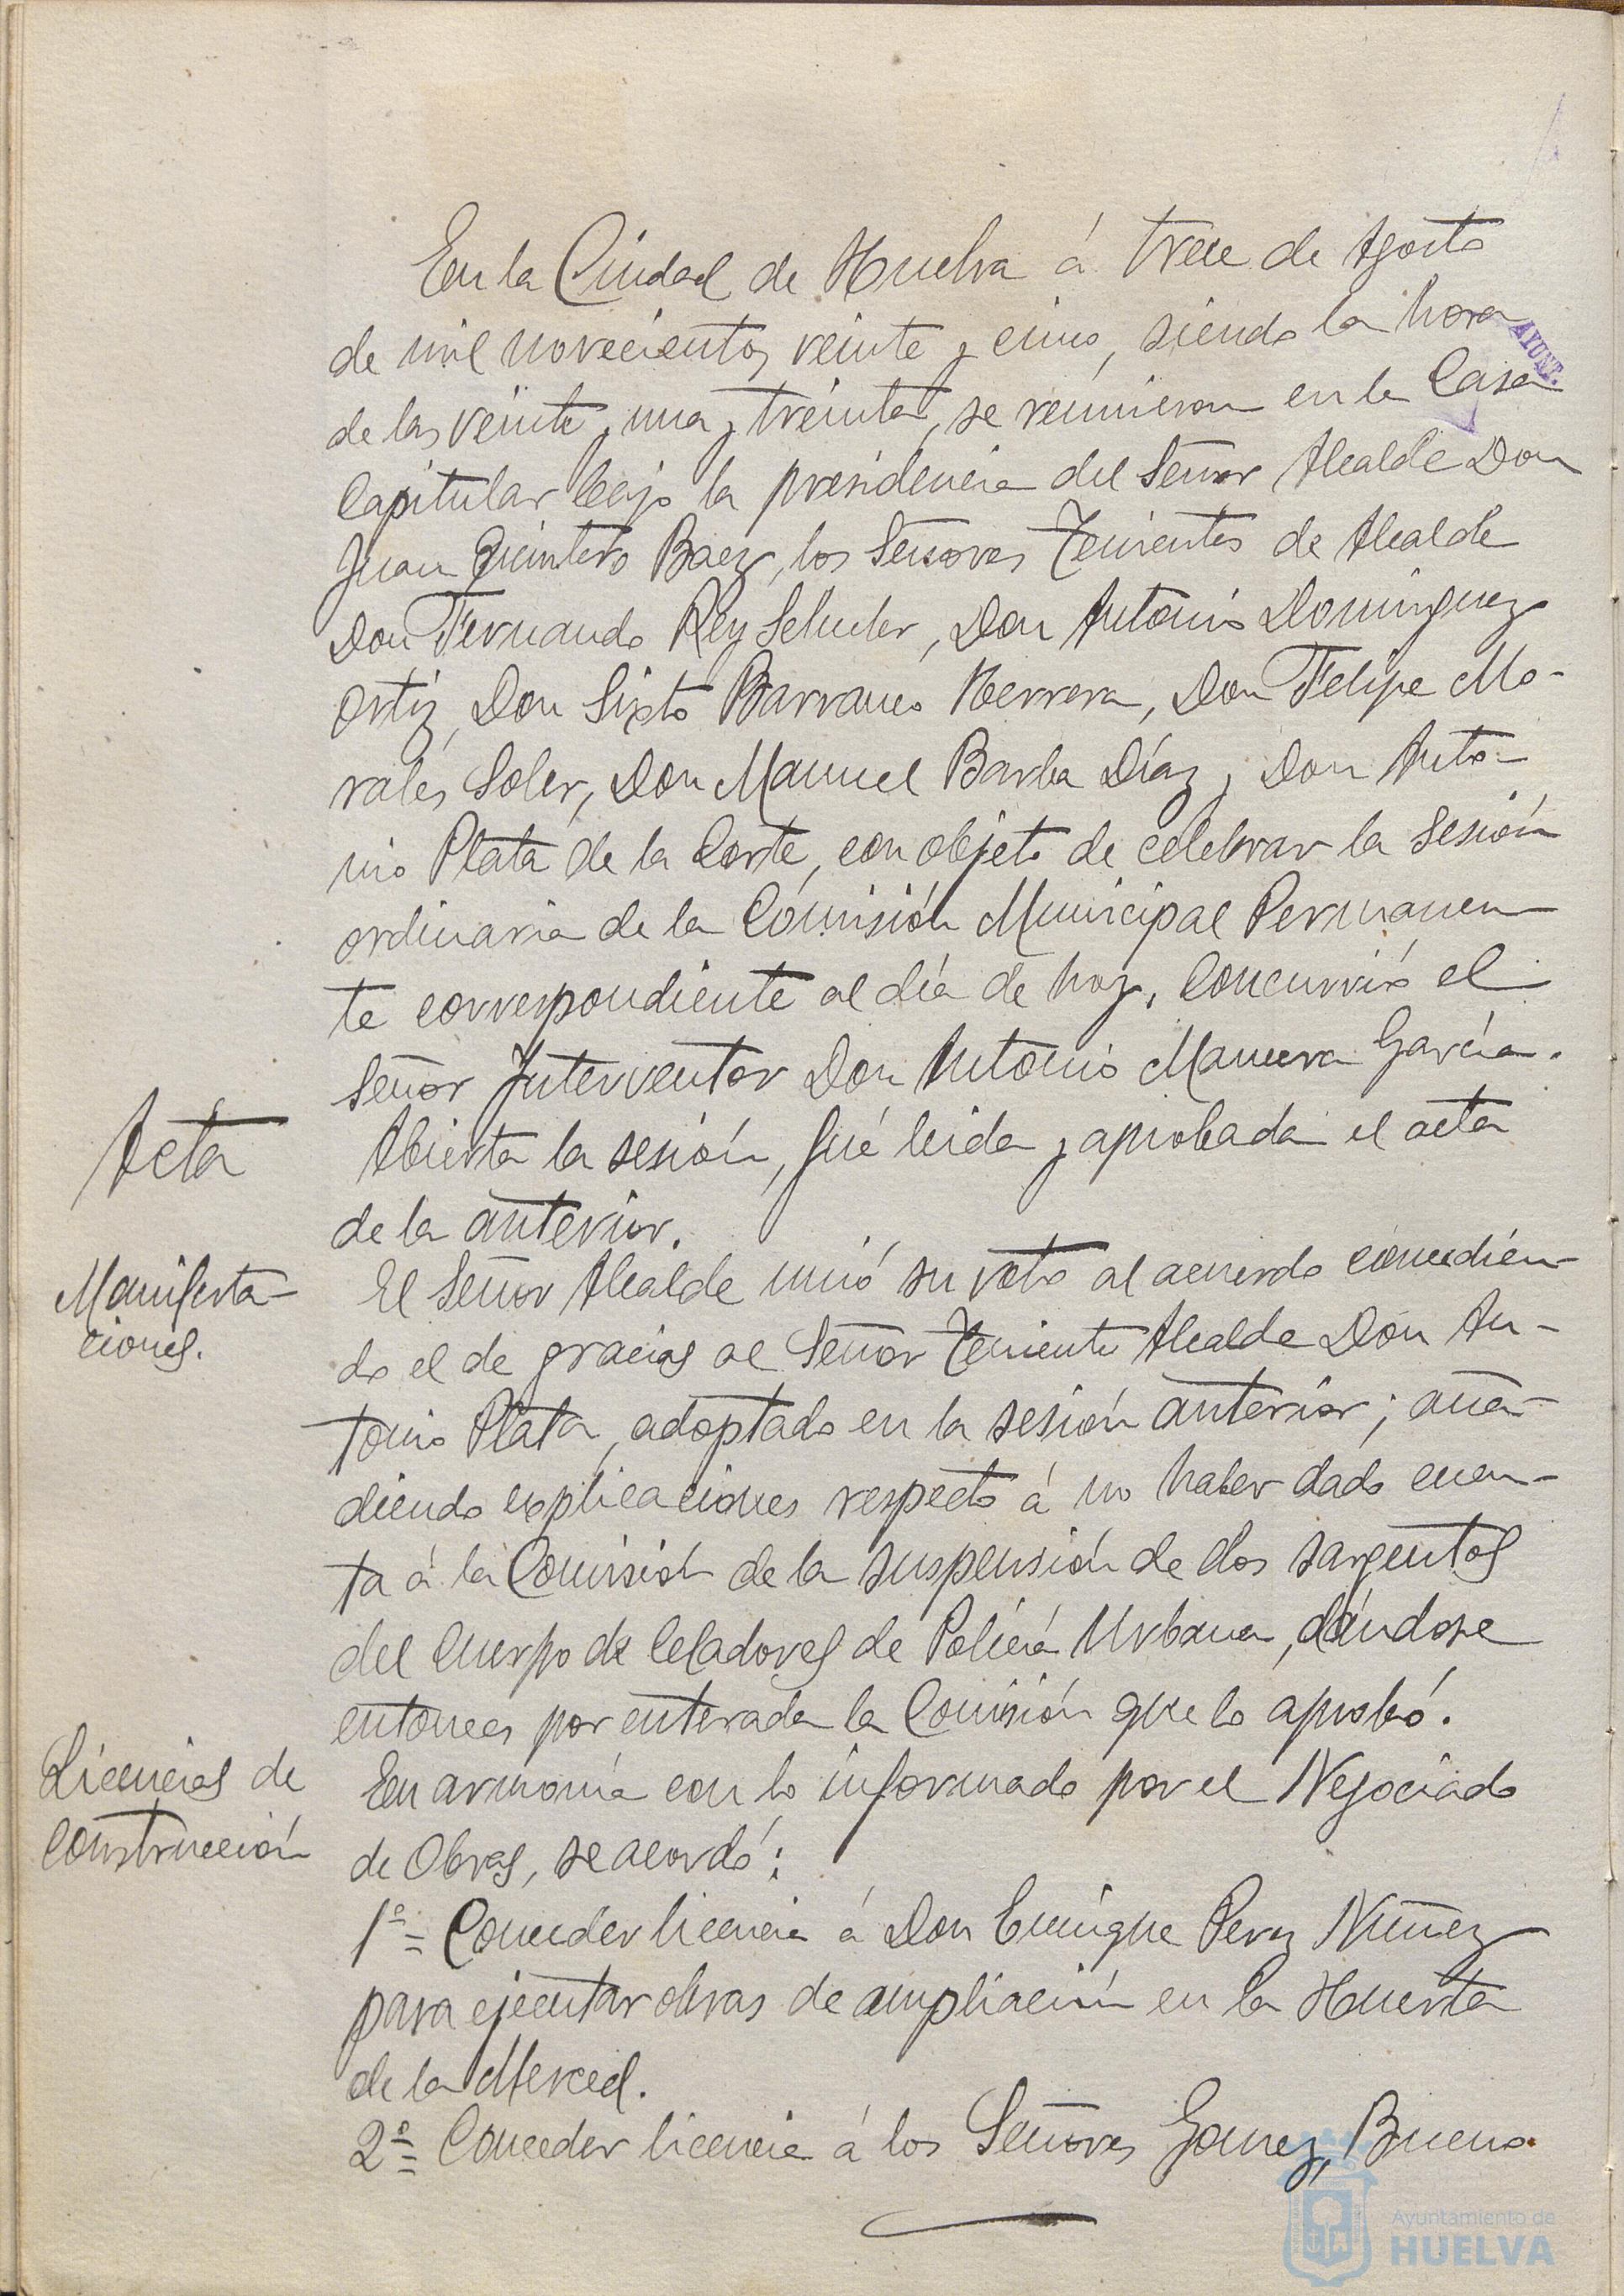 En la Ciudad de Huelva á trece de Agosto
de mil novecientos veinte y cinco, siendo la hora
AYUNT.
de las veinte y una y treinta, se reunieron en la Casa
Capitular bajo la presidencia del Señor Alcalde Don
Juan Quintero Baez, los Señores Tenientes de Alcalde
Don Fernando Rey Scluder, Don Antonio Dominguez
Ortiz, Don Sixto Barranco Herrera, Don Felipe Mo-
rales Soler, Don Manuel Barba Díaz y Don Anto-
nio Plata de la Corte, con objeto de celebrar la sesión
ordinaria de la Comisión Municipal Permanen
te correspondiente al día de hoy. Concurrió el
Señor Interventor Don Antonio Manuera García.
Acta
Abierta la sesión, fué leida y aprobada el acta
de la anterior.
Manifesta-
ciones.
El Señor Alcalde unió su voto al acuerdo concedien-
do el de gracias al Señor Teniente Alcalde Don An-
tonio Plata, adoptado en la sesión anterior; aña-
diendo explicaciones respecto á no haber dado cuen-
ta á la Comisión de la suspensión de dos sargentos
del Cuerpo de Celadores de Policia Urbana, dándose
entonces por enterada la Comisión que lo aprobó.
Licencias de
construcción
En armonía con lo informado por el Negociado
de Obras, se acordó:
1º = Conceder licencia á Don Enrique Perez Nuñez
para ejecutar obras de ampliación en la Huerta
de la Merced.
2º = Conceder licencia á los Señores Gomez, Bueno
Ayuntamiento de
HUELVA